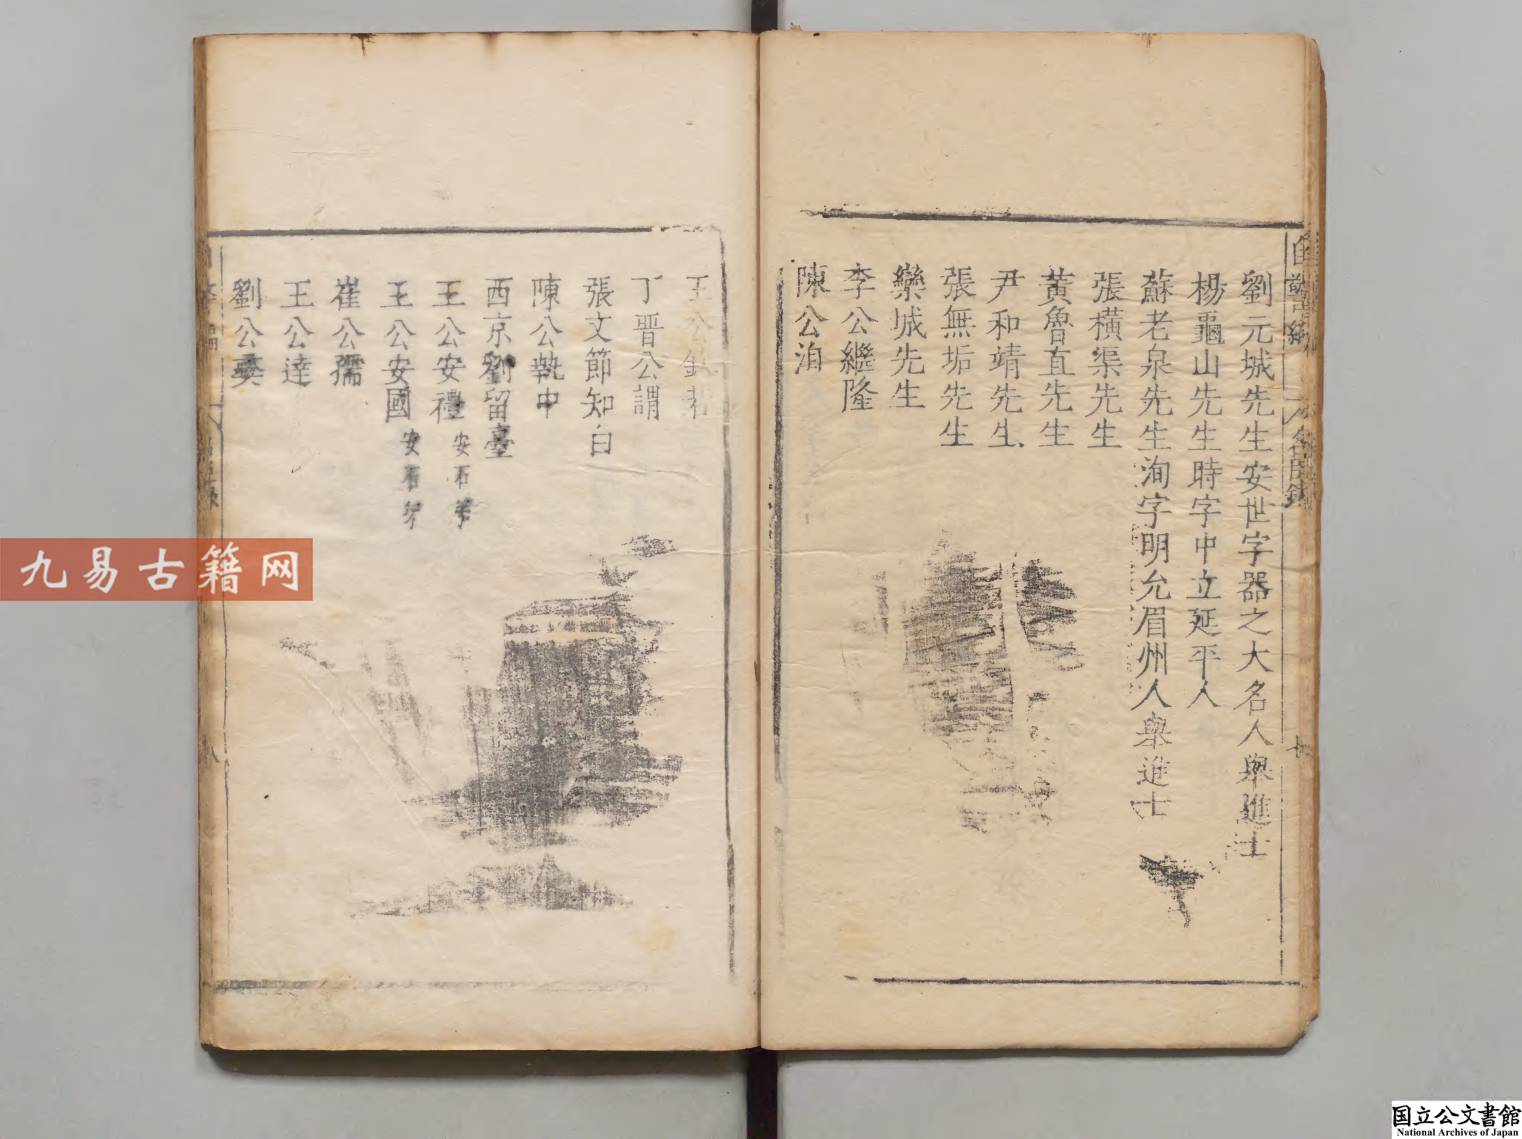 劉元城先生安世字器之大名人舉進士
楊龜山先生時字中立延平人
蘇老泉先生洵字明允眉州人舉進士
張橫渠先生
黃魯直先生
尹和靖先生
張無垢先生
欒城先生
李公繼隆
陳公洎
王公欽若
丁晉公謂
張文節知白
陳公執中
西京劉留臺
王公安禮安石弟
王公安國安石弟
崔公孺
王公達
劉公奭
自警編
名臣錄
九易古籍网
国立公文書館
National Archives of Japan